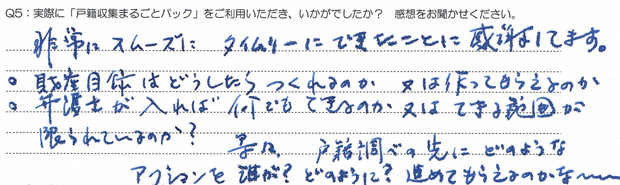 Q5：実際に「戸籍収集まるごとパック」をご利用いただき、いかがでしたか？ 感想をお聞かせください。
非常にスムーズに タイムリーにできたことに感謝してます。
○ 財産目録はどうしたら つくれるのか 又は作ってもらえるのか
○ 弁護士が入れば 何でもできるのか 又は できる範囲が
限られているのか？
戸籍調べの先に どのような
アクションを 誰が？ どのように？ 進めてもらえるのかな～